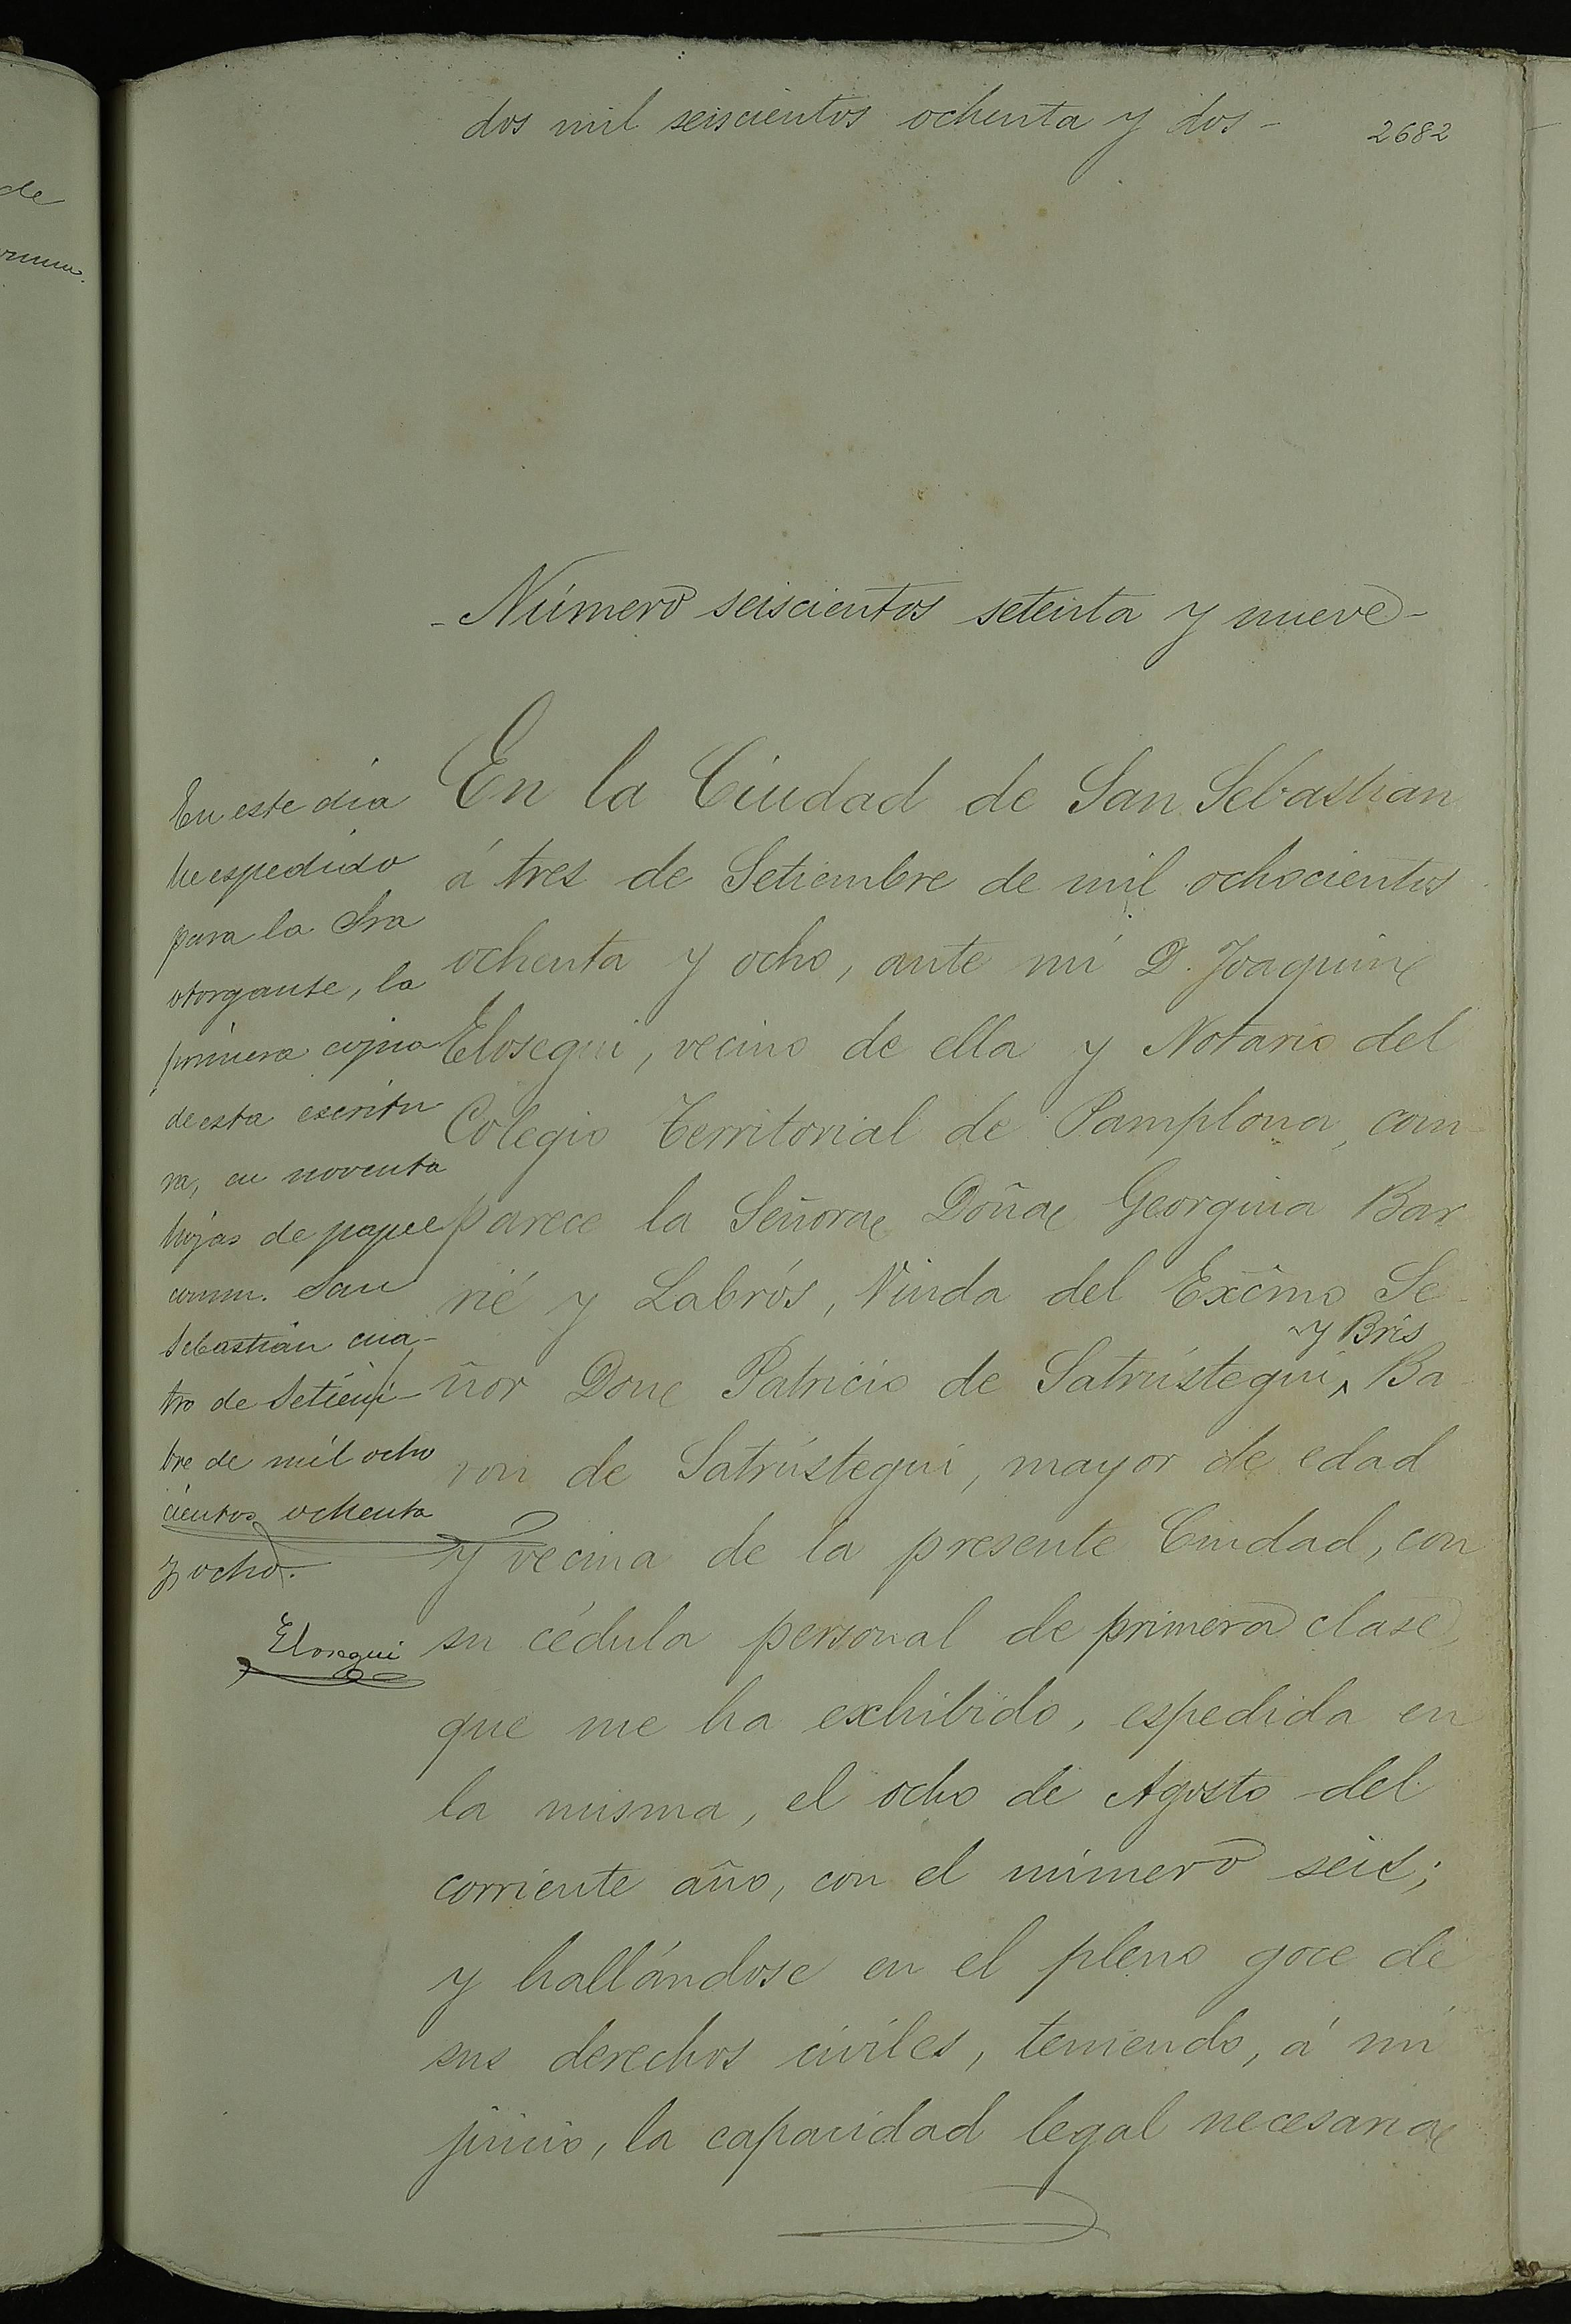 de
dos mil seiscientos ochenta y dos -
2682
- Número seiscientos setenta y nueve -
En este dia
he espedido
para la Sra
otorgante, la
primera copia
de esta escritu
ra, en noventa
hojas de papel
comun. San
Sebastián cua-
tro de Setiem-
bre de mil ocho
cientos ochenta
y ocho.
Elosegui
En la Ciudad de San Sebastian
á tres de Setiembre de mil ochocientos
ochenta y ocho, ante mi D. Joaquin
Elosegui, vecino de ella y Notario del
Colegio Territorial de Pamplona, com-
parece la Señora Doña Georgina Bar
rié y Labrós, Viuda del Excmo Se-
ñor Don Patricio de Satrústegui, y Bris Ba-
ron de Satrústegui, mayor de edad
y vecina de la presente Ciudad, con
su cédula personal de primera clase,
que me ha exhibido, espedida en
la misma, el ocho de Agosto del
corriente año, con el número seis;
y hallándose en el pleno goce de
sus derechos civiles, teniendo, á mi
juicio, la capacidad legal necesaria